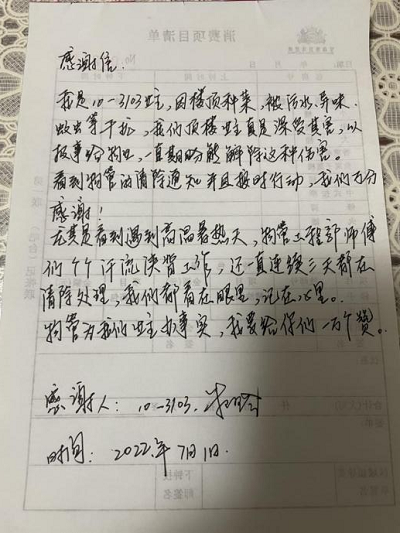 消费项目清单
感谢信.
我是10-3103业主,因楼顶种菜,被污水、异味
等干扰,我们顶楼业主真是深受其害,以
报事给物业,一直期盼能解除这种伤害。
看到物管的清除通知并且按时行动,我们万分
感谢!
尤其是看到遇到高温暑热天,物管工程部师傅
们个个汗流浃背工作,还一直连续三天都在
清除处理,我们都看在眼里,记在心里。
物管为我们业主办事实,我要给你们一万个赞。
感谢人: 10-3103.
时间: 2022年7月1日.